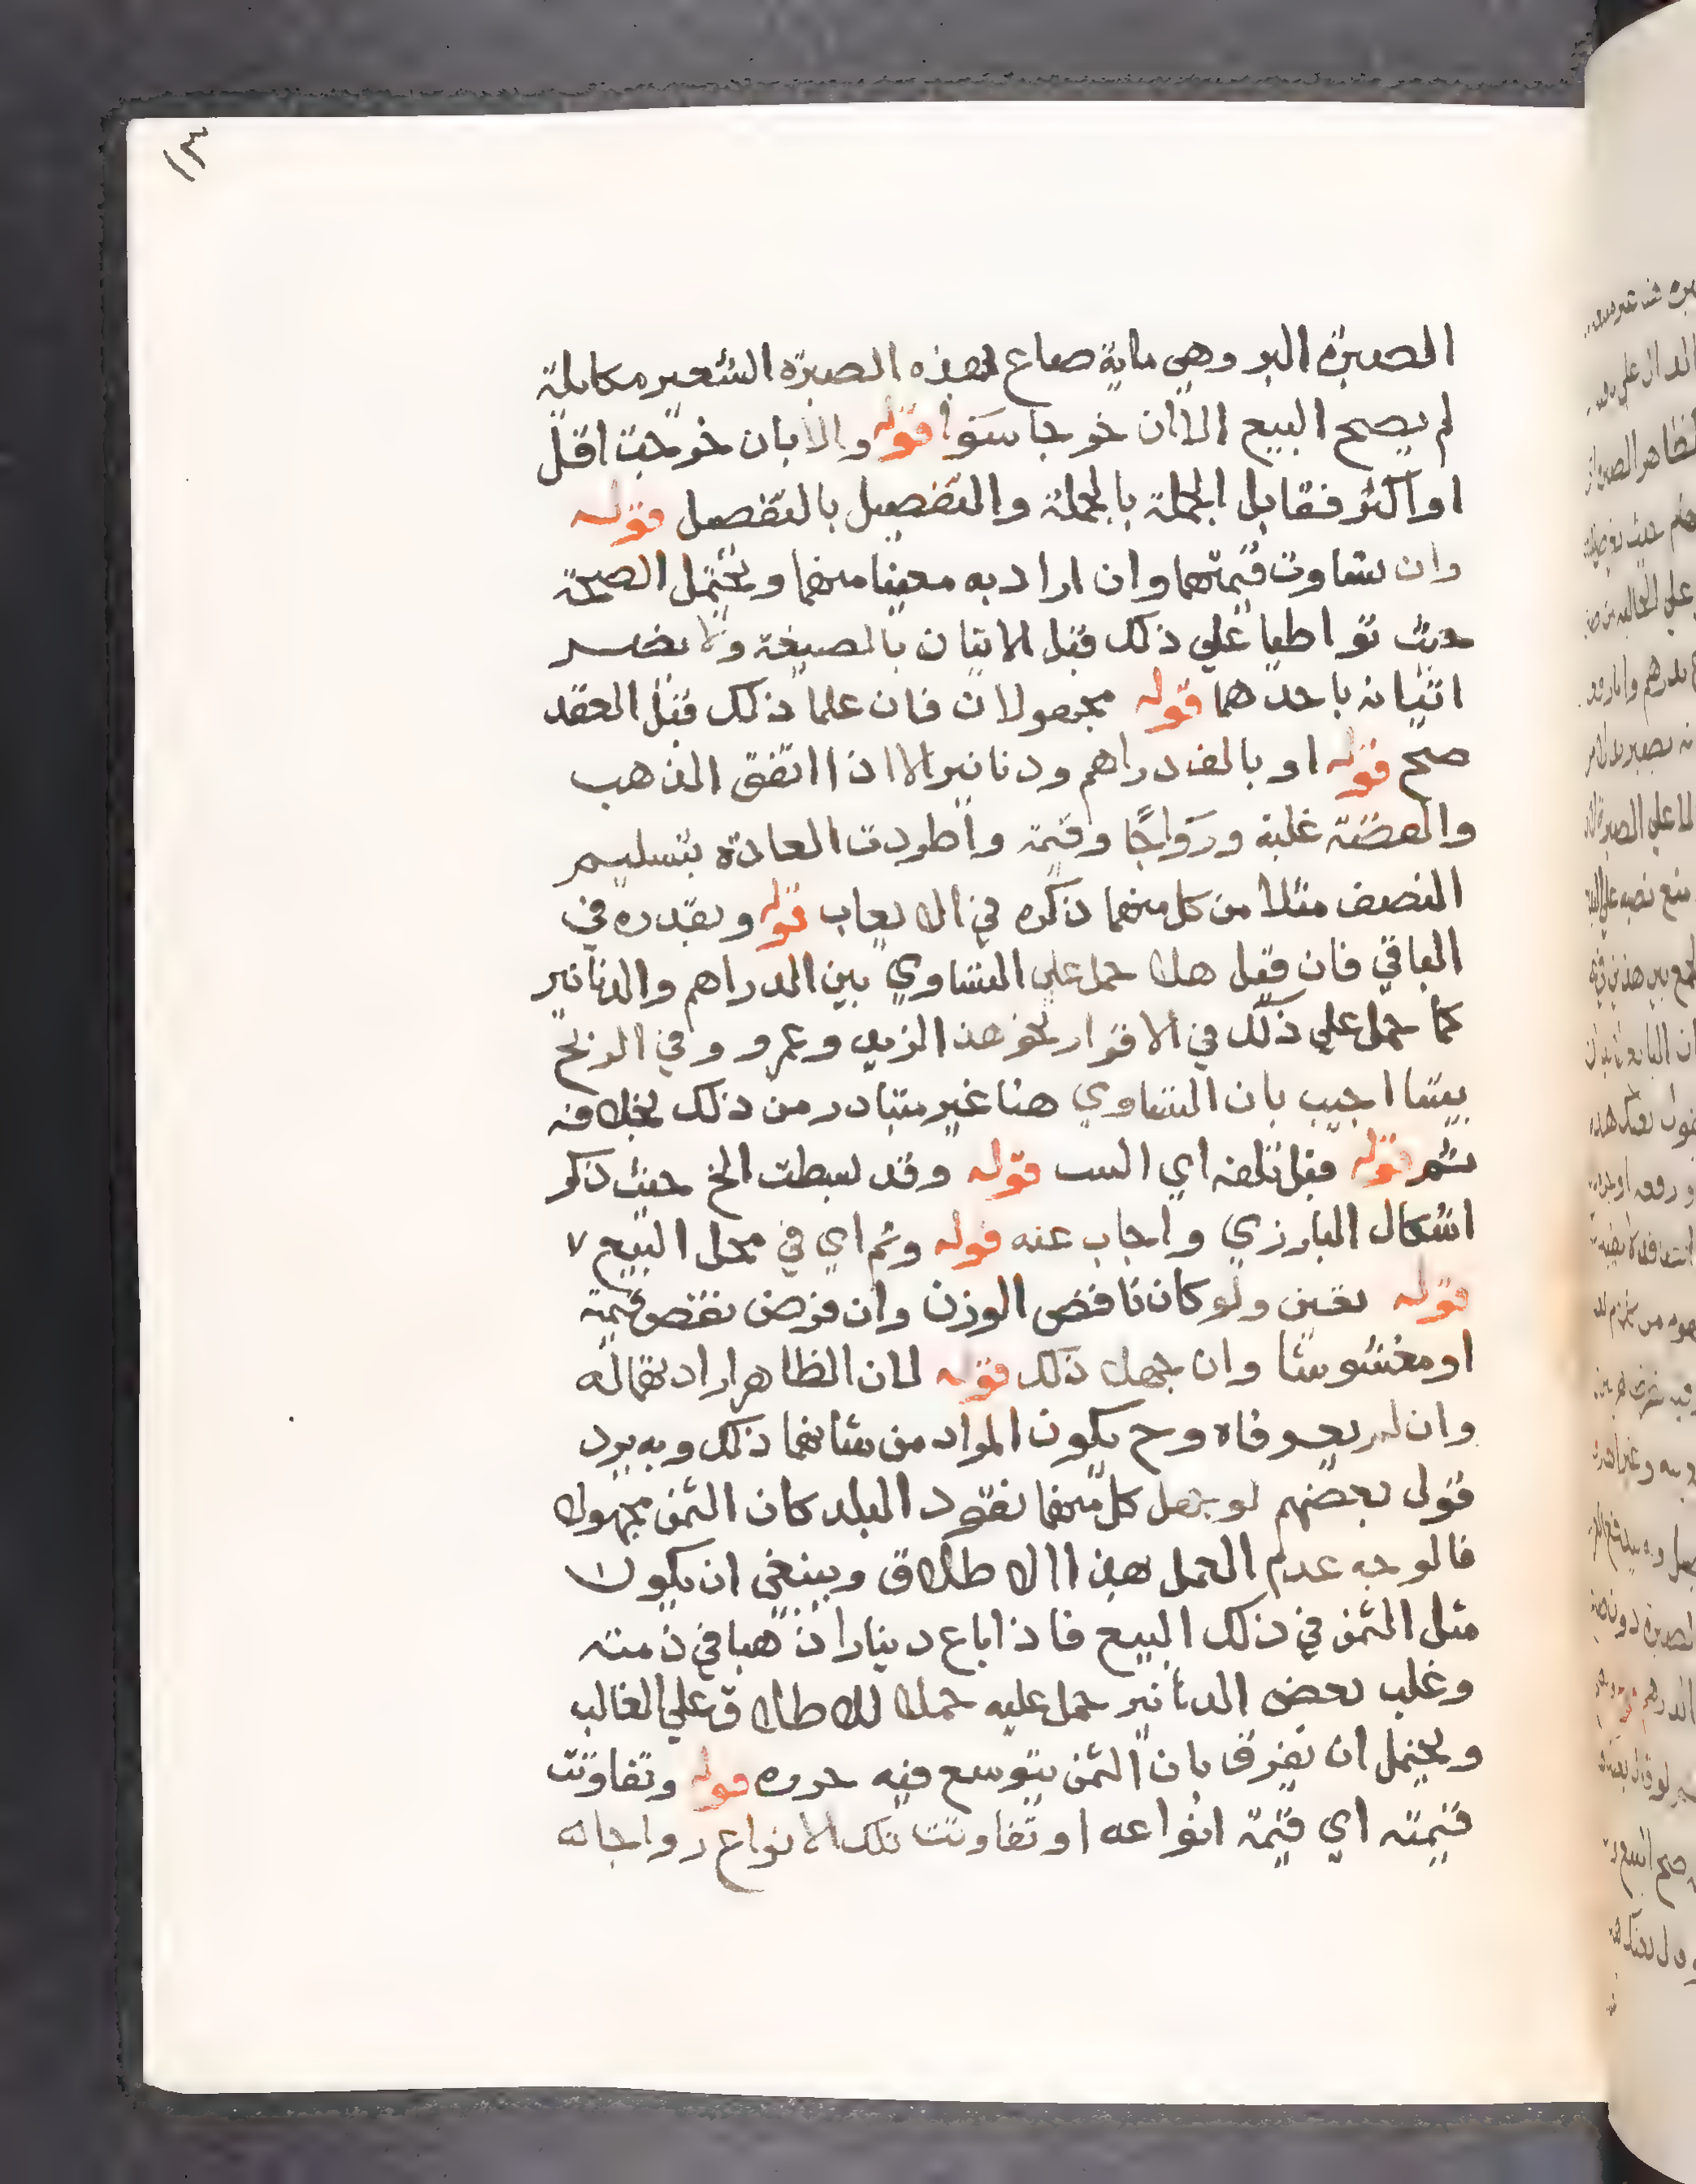 ١٣
الصبرة البر وهي ماية صاع بهذه الصبرة الشعير مكايلة
لم يصح البيع الا ان خرجا سَوَا قوله والا بان خرجت اقل
او اكثر فقابل الجملة بالجملة والتفصيل بالتفصيل قوله
وان تساوت قيمتهما وان اراد به معينا منهما ويحتمل الصحة
حيث تواطيا علي ذلك قبل الاتيان بالصيغة ولا يضر
اتيانه باحدهما قوله مجهولان فان علما ذلك قبل العقد
صح قوله او بالف دراهم ودنانير الا اذا اتفق الذهب
والفضة غلبة ورَوَاجًا وقيمة واطردت العادة بتسليم
النصف مثلا من كل منهما ذكره في الايعاب قوله وبقدره في
الباقي فان قيل هلا حمل علي التساوي بين الدراهم والدنانير
كما حمل علي ذلك في الاقرار نحو هذا لزيد وعمرو وفي الربح
بيننا اجيب بان التساوي هنا غير متبادر من ذلك بخلافه
ثم قوله قبل تلفه اي قوله وقد بسطت الخ حيث ذكر
اشكال البارزي واجاب عنه قوله وثم اي في محل البيع ٧
قوله تعين ولو كان ناقص الوزن وان فرض نقص قيمة
او مغشوشا وان جهل ذلك قوله لان الظاهر اراد تهماله
وان لم يعرفاه وح يكون المراد من شانهما ذلك وبه يرد
قول بعضهم لو جهل كل منهما نقود البلد كان الثمن مجهولا
فالوجه عدم العمل بهذا الاطلاق وينبغي ان يكون
مثل الثمن في ذلك البيع فاذا باع دينارا ذهبا في ذمته
وغلب بعض الدنانير حمل عليه حملا للاطلاق علي الغالب
ويحتمل ان يفرق بان الثمن يتوسع فيه حرره قوله وتفاوتت
قيمته اي قيمة انواعه او تفاوتت تلك الانواع رواجا له